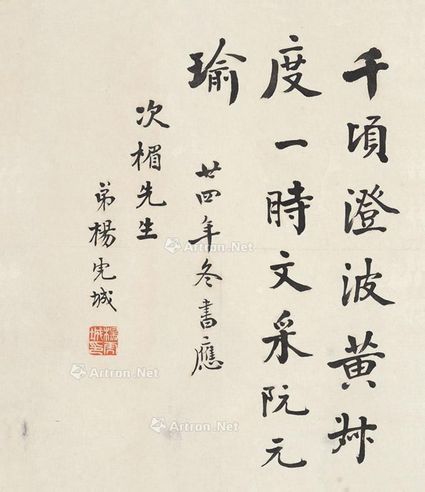 千頃澄波黃叔
度一時文采阮元
瑜
廿四年冬書應
次楣先生
弟楊虎城
楊虎城印
Artron.Net
Artron.Net
Artron.Net